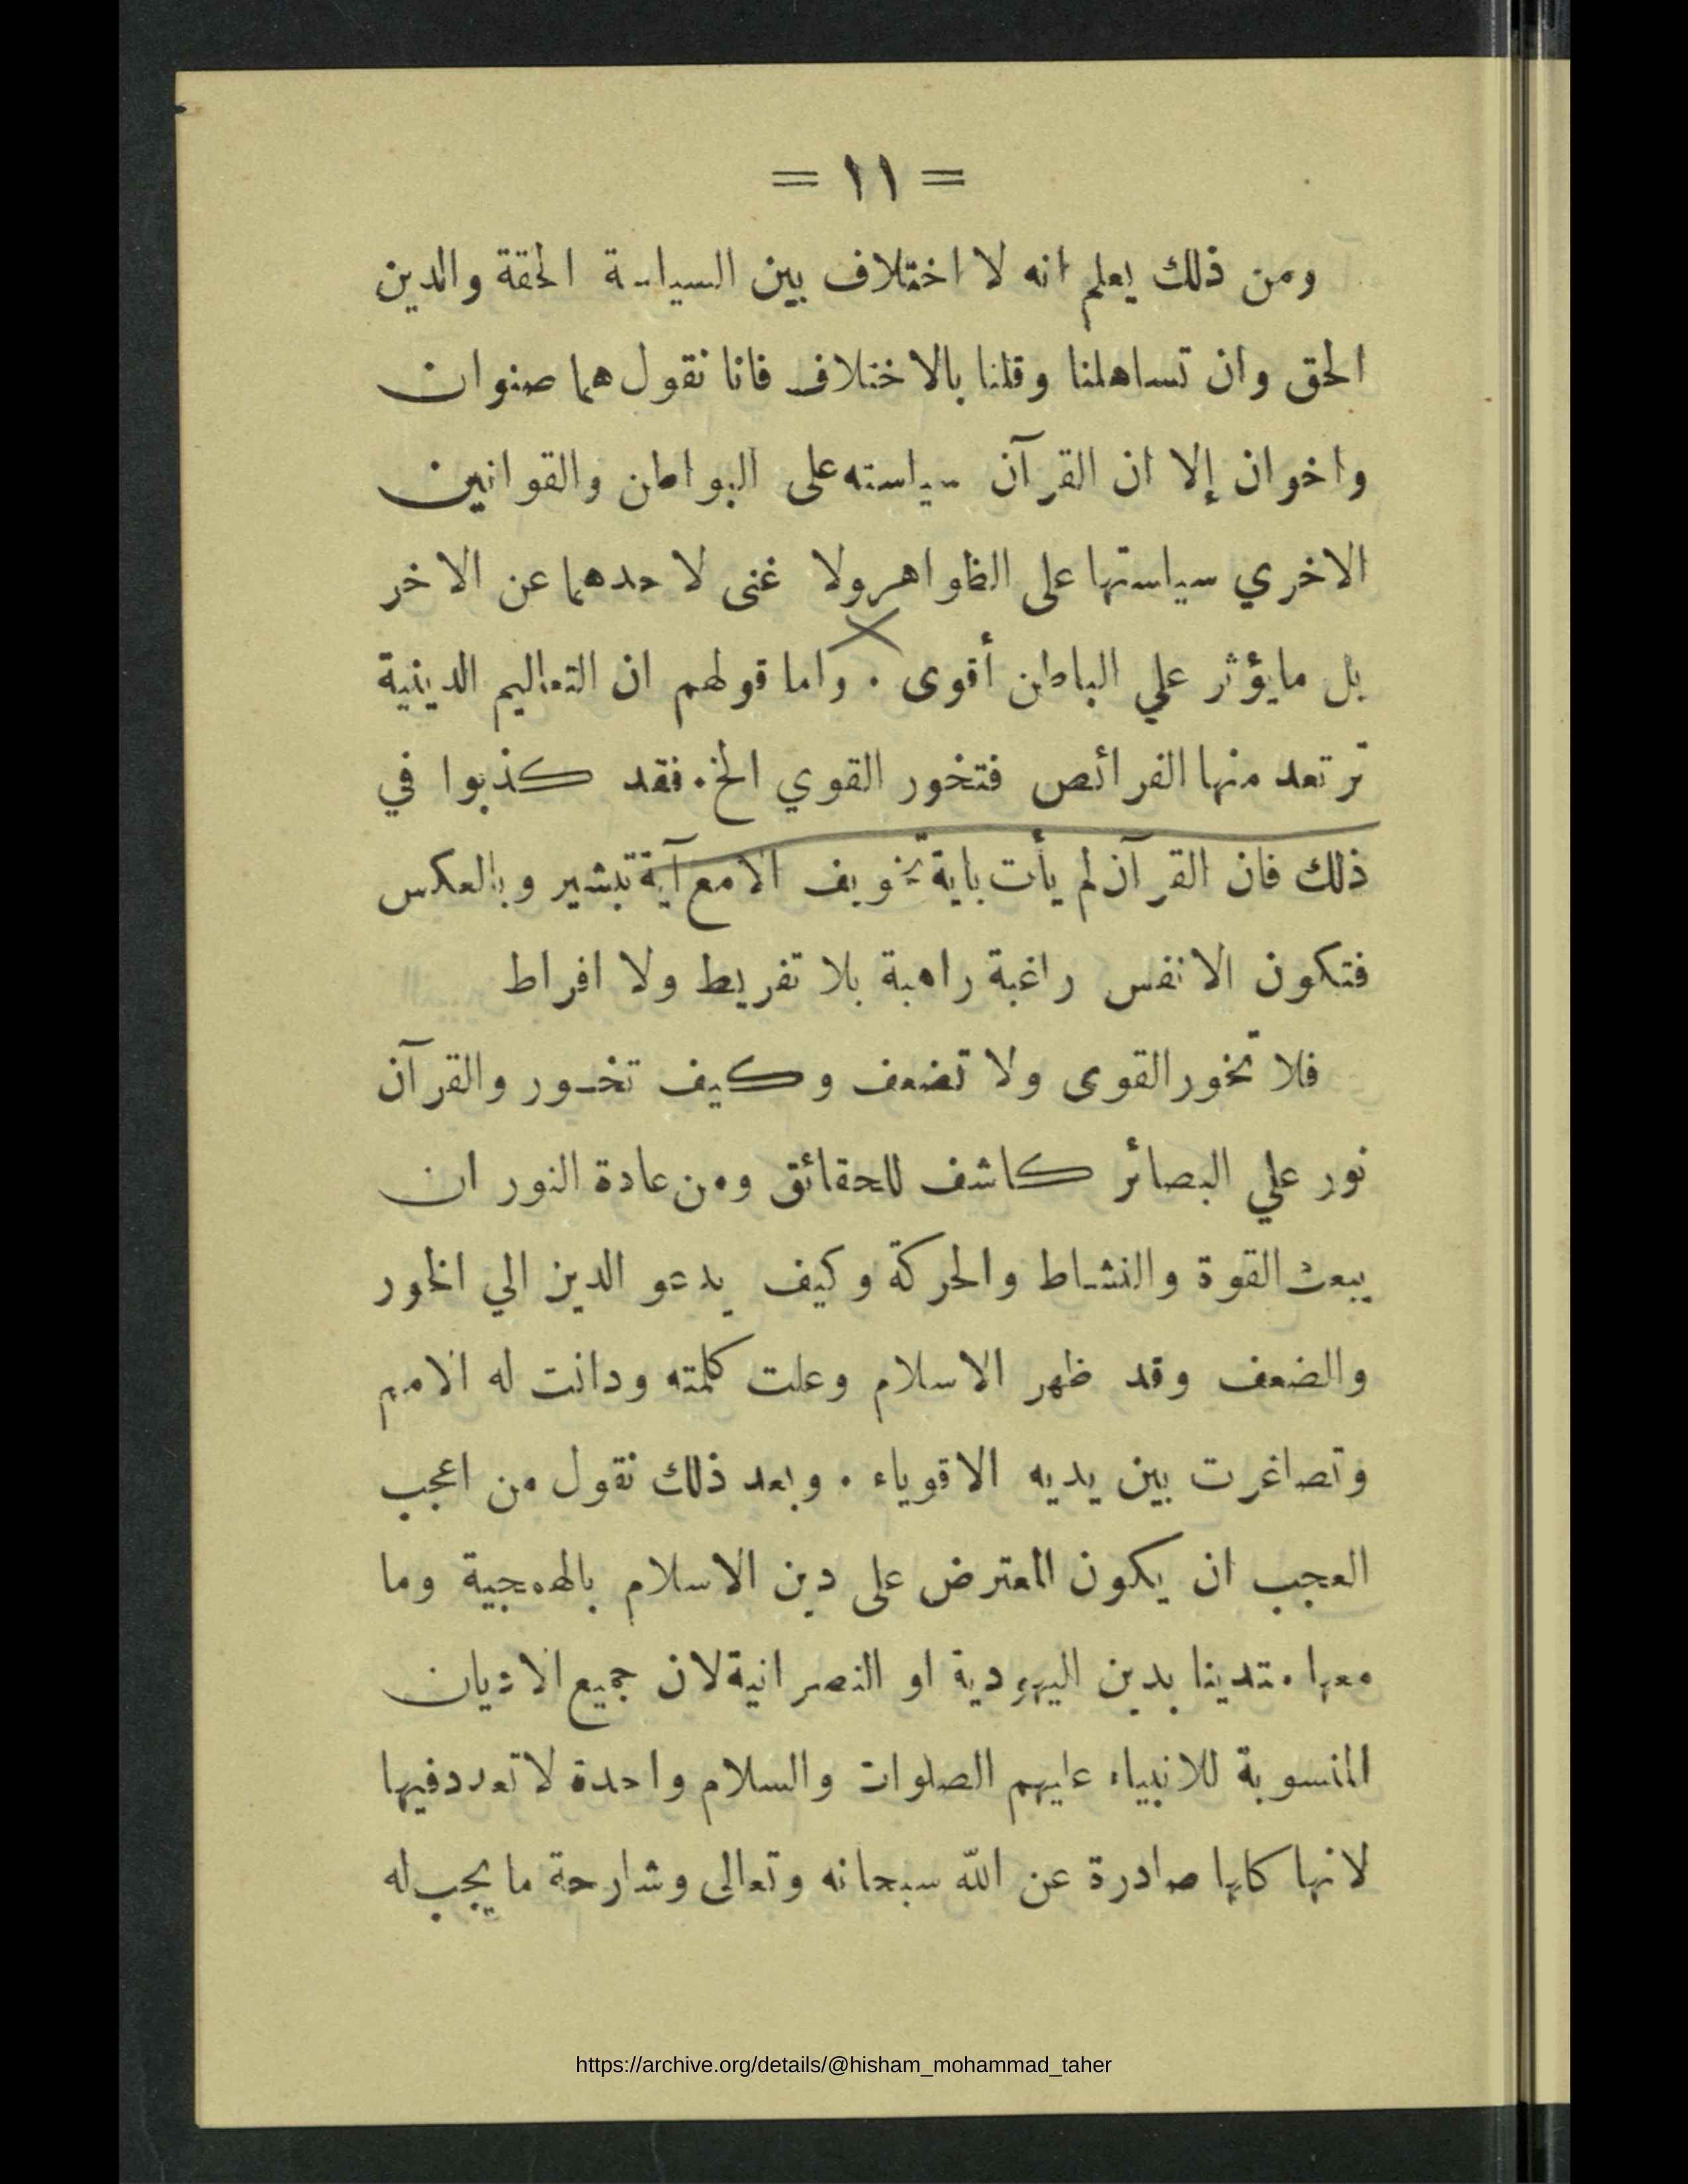 = ١١ =
ومن ذلك يعلم انه لا اختلاف بين السياسة الحقة والدين
الحق وان تساهلنا وقلنا بالاختلاف فانا نقول هما صنوان
واخوان إلا ان القرآن سياسته على البواطن والقوانين
الاخري سياستها على الظواهر ولا غنى لاحدهما عن الاخر
بل مايؤثر علي الباطن أقوى . واما قولهم ان التعاليم الدينية
ترتعد منها الفرائص فتخور القوي الخ . فقد كذبوا في
ذلك فان القرآن لم يأت باية تخويف الامع آية تبشير وبالعكس
فتكون الانفس راغبة راهبة بلا تفريط ولا افراط
فلا تخور القوى ولا تضعف وكيف تخور والقرآن
نور علي البصائر كاشف للحقائق ومن عادة النور ان
يبعث القوة والنشاط والحركة وكيف يدعو الدين الي الخور
والضعف وقد ظهر الاسلام وعلت كلمته ودانت له الامم
وتصاغرت بين يديه الاقوياء . وبعد ذلك نقول من اعجب
العجب ان يكون المعترض على دين الاسلام بالهمجية وما
معها متدينا بدين اليهودية او النصرانية لان جميع الاديان
المنسوبة للانبياء عليهم الصلوات والسلام واحدة لا تعدد فيها
لانها كلها صادرة عن الله سبحانه وتعالى وشارحة ما يجب له
https://archive.org/details/@hisham_mohammad_taher